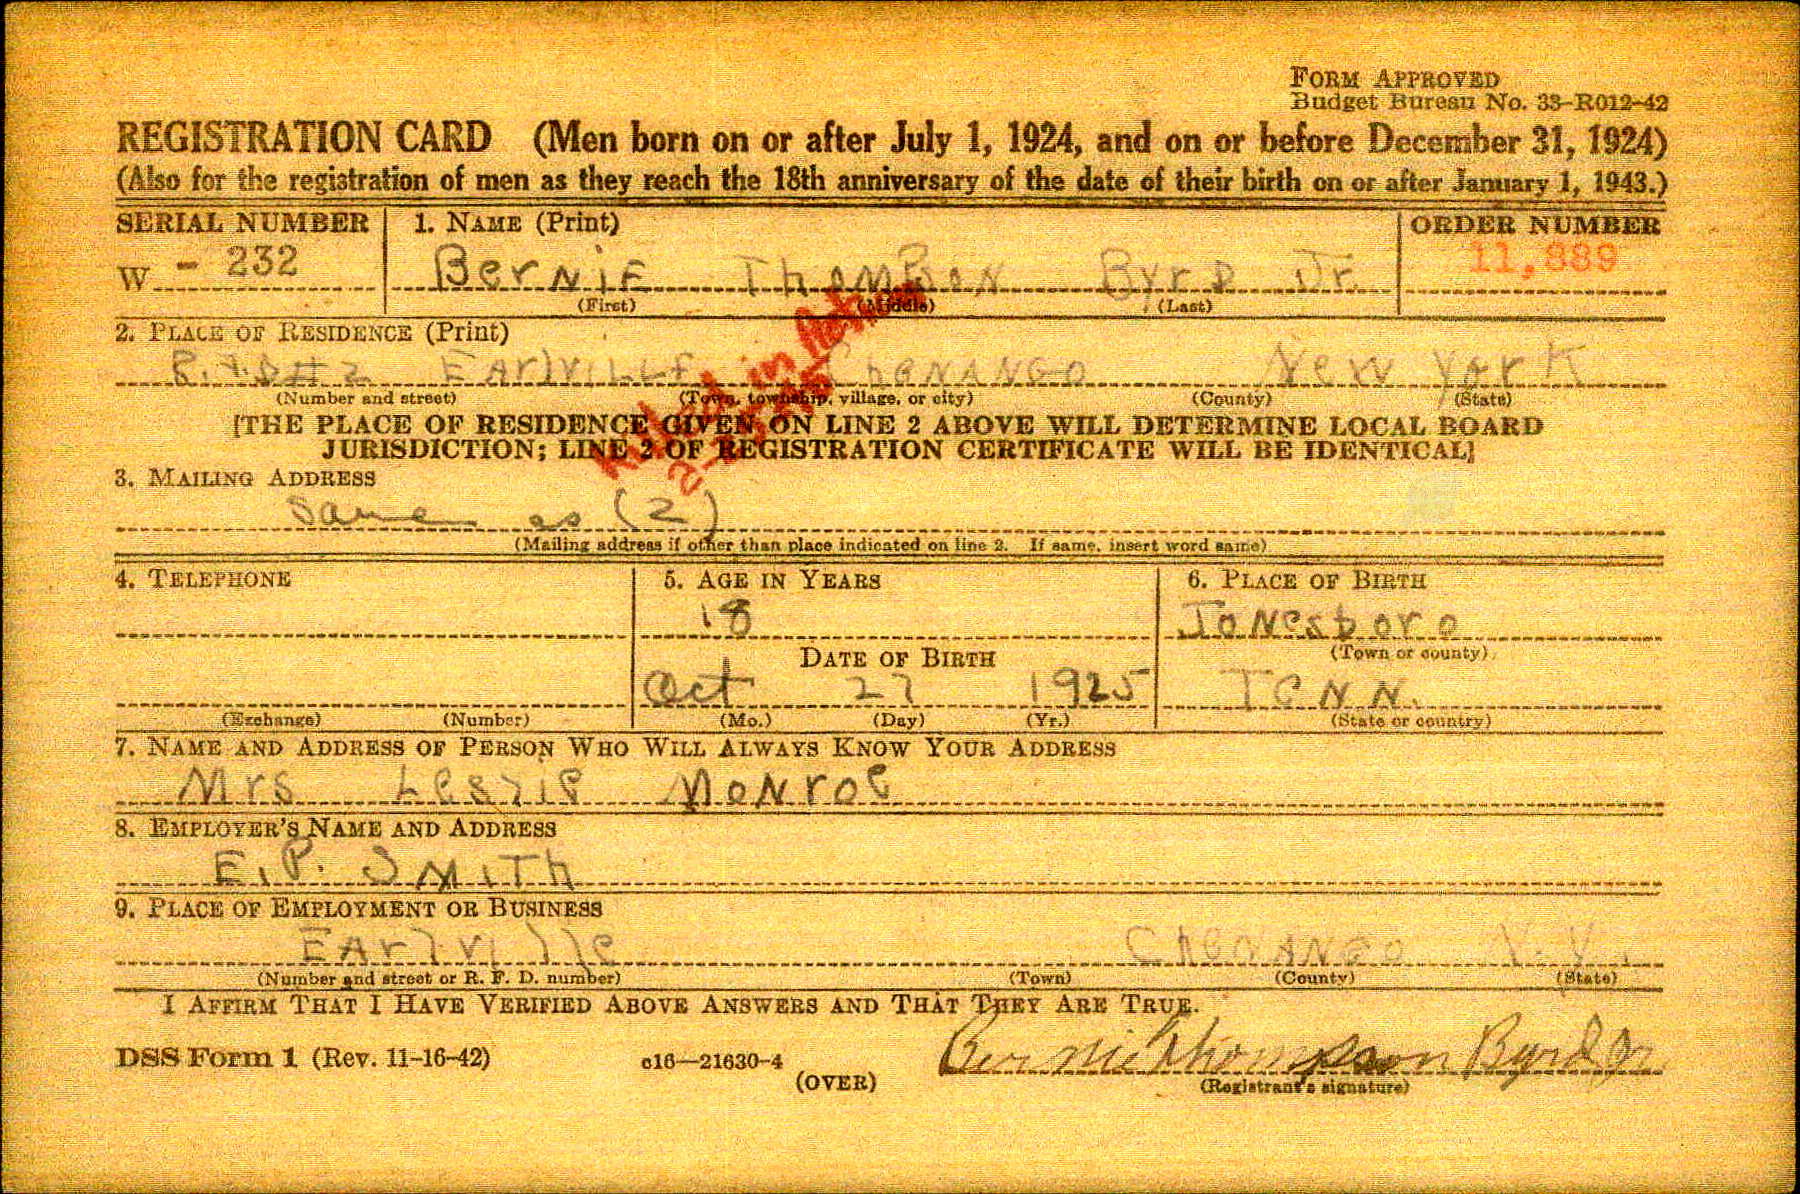 FORM APPROVED
Budget Bureau No. 33–R012–42
REGISTRATION CARD (Men born on or after July 1, 1924, and on or before December 31, 1924)
(Also for the registration of men as they reach the 18th anniversary of the date of their birth on or after January 1, 1943.)
SERIAL NUMBER 1. NAME (Print) ORDER NUMBER
W - 232 BerNiE ThomPson ByrD Jr. 11,889
(First) (Middle) (Last)
Killed in Action
2. PLACE OF RESIDENCE (Print)
R.F.D#2 EArlVILLE ChENANGO New York
(Number and street) (Town, township, village, or city) (County) (State)
[THE PLACE OF RESIDENCE GIVEN ON LINE 2 ABOVE WILL DETERMINE LOCAL BOARD
JURISDICTION; LINE 2 OF REGISTRATION CERTIFICATE WILL BE IDENTICAL]
3. MAILING ADDRESS
Same as (2)
(Mailing address if other than place indicated on line 2. If same, insert word same)
4. TELEPHONE 5. AGE IN YEARS 6. PLACE OF BIRTH
18 Jonesboro
DATE OF BIRTH (Town or county)
Oct 27 1925 TENN.
(Exchange) (Number) (Mo.) (Day) (Yr.) (State or country)
7. NAME AND ADDRESS OF PERSON WHO WILL ALWAYS KNOW YOUR ADDRESS
Mrs Leslie Monroe
8. EMPLOYER'S NAME AND ADDRESS
E.P. SMITh
9. PLACE OF EMPLOYMENT OR BUSINESS
EArlville ChENANGO N.Y.
(Number and street or R. F. D. number) (Town) (County) (State)
I AFFIRM THAT I HAVE VERIFIED ABOVE ANSWERS AND THAT THEY ARE TRUE.
DSS Form 1 (Rev. 11–16–42) c16—21630–4 Bernie Thompson Byrd Jr
(OVER) (Registrant's signature)